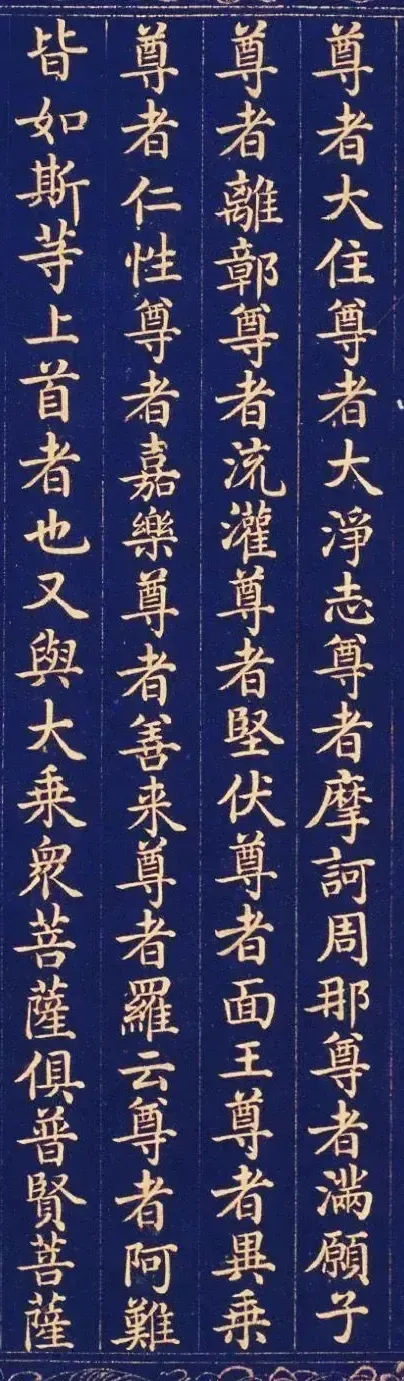 尊者大住尊者大淨志尊者摩訶周那尊者滿願子
尊者離鄣尊者流灌尊者堅伏尊者面王尊者異乘
尊者仁性尊者嘉樂尊者善来尊者羅云尊者阿難
皆如斯等上首者也又與大乘眾菩薩俱普賢菩薩